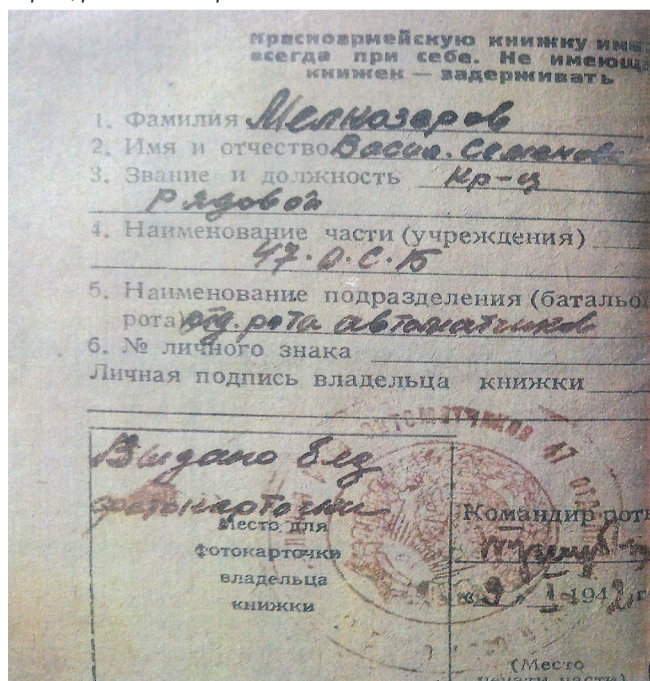 красноармейскую книжку име
всегда при себе. Не имеющ
книжек — задерживать
1. Фамилия Мелкозеров
2. Имя и отчество Васил. Семенов
3. Звание и должность кр-ц
рядовой
4. Наименование части (учреждения)
47. О. С. Б
5. Наименование подразделения (батальо
рота) отд. рота автоматчиков
6. № личного знака
Личная подпись владельца книжки
Выдано без
фотокарточки
Место для
фотокарточки
владельца
книжки
Командир рот
194 г
(Место
печати части)
АВТОМАТЧИКОВ 47 ОТД